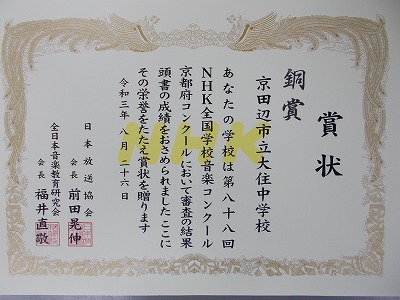 賞状
銅賞
京田辺市立大住中学校
あなたの学校は第八十八回
NHK全国学校音楽コンクール
京都府コンクールにおいて審査の結果
頭書の成績をおさめられました ここに
その栄誉をたたえ賞状を贈ります
令和三年八月二十六日
日本放送協会
会長 前田晃伸
全日本音楽教育研究会
会長 福井直敬
NHK